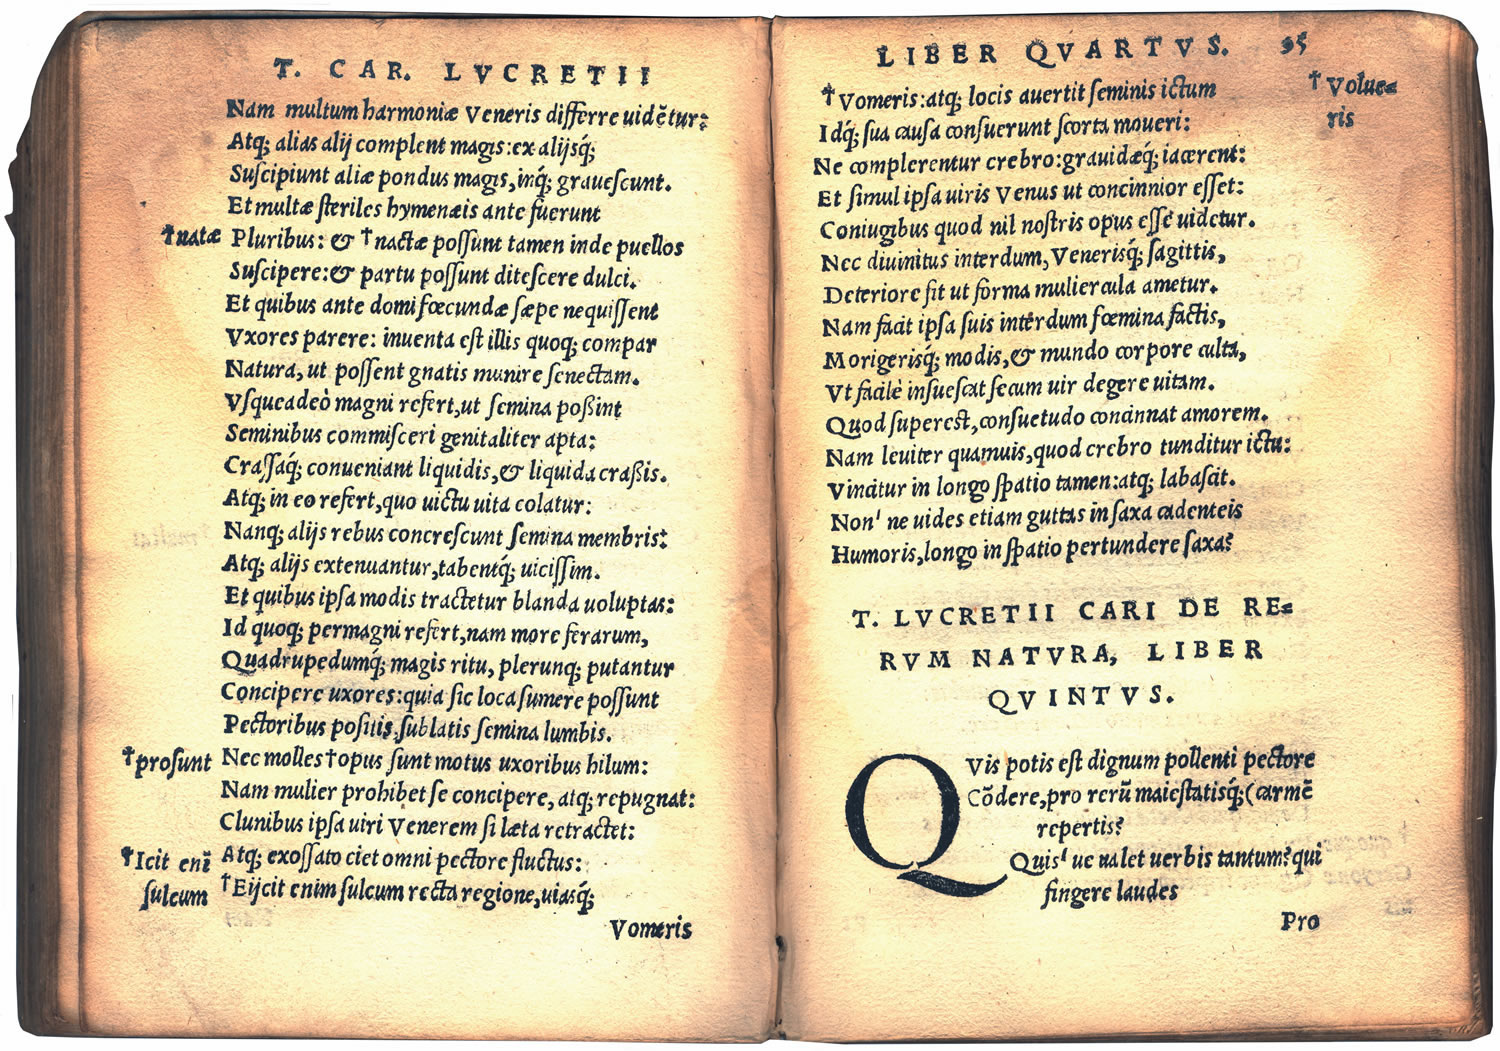 T. CAR. LVCRETII
Nam multum harmoniæ Veneris differre uidẽtur:
Atq; alias alij complent magis: ex alijsq́;
Suſcipiunt aliæ pondus magis, inq́; graueſcunt.
Et multæ ſteriles hymenæis ante fuerunt
†natæ Pluribus: & †nactæ poſſunt tamen inde puellos
Suſcipere: & partu poſſunt diteſcere dulci.
Et quibus ante domi fœcundæ ſæpe nequiſſent
Vxores parere: inuenta eſt illis quoq; compar
Natura, ut poſſent gnatis munire ſenectam.
Vſqueadeò magni refert, ut ſemina poßint
Seminibus commiſceri genitaliter apta:
Craſſaq́; conueniant liquidis, & liquida craßis.
Atq; in eo refert, quo uictu uita colatur:
Nanq; alijs rebus concreſcunt ſemina membris:
Atq; alijs extenuantur, tabentq́; uiciſſim.
Et quibus ipſa modis tractetur blanda uoluptas:
Id quoq; permagni refert, nam more ferarum,
Quadrupedumq́; magis ritu, plerunq; putantur
Concipere uxores: quia ſic loca ſumere poſſunt
Pectoribus poſitis, ſublatis ſemina lumbis.
†proſunt Nec molles †opus ſunt motus uxoribus hilum:
Nam mulier prohibet ſe concipere, atq; repugnat:
Clunibus ipſa uiri Venerem ſi læta retractet:
†Icit enĩ Atq; exoſſato ciet omni pectore fluctus:
ſulcum †Eijcit enim ſulcum recta regione, uiasq́;
Vomeris
LIBER QVARTVS. 95
†Vomeris: atq; locis auertit ſeminis ictum †Volue=
Idq́; ſua cauſa conſuerunt ſcorta moueri: ris
Ne complerentur crebro: grauidæq́; iacerent:
Et ſimul ipſa uiris Venus ut concinnior eſſet:
Coniugibus quod nil noſtris opus eſſe uidetur.
Nec diuinitus interdum, Venerisq́; ſagittis,
Deteriore fit ut forma muliercula ametur.
Nam facit ipſa ſuis interdum fœmina factis,
Morigerisq́; modis, & mundo corpore culta,
Vt facilè inſueſcat ſecum uir degere uitam.
Quod ſupereſt, conſuetudo concinnat amorem.
Nam leuiter quamuis, quod crebro tunditur ictu:
Vincitur in longo ſpatio tamen: atq; labaſcit.
Non' ne uides etiam guttas in ſaxa cadenteis
Humoris, longo in ſpatio pertundere ſaxa?
T. LVCRETII CARI DE RE=
RVM NATVRA, LIBER
QVINTVS.
QVis potis eſt dignum pollenti pectore
Cõdere, pro rerũ maieſtatisq́; (carmẽ
repertis?
Quis' ue ualet uerbis tantum? qui
fingere laudes
Pro